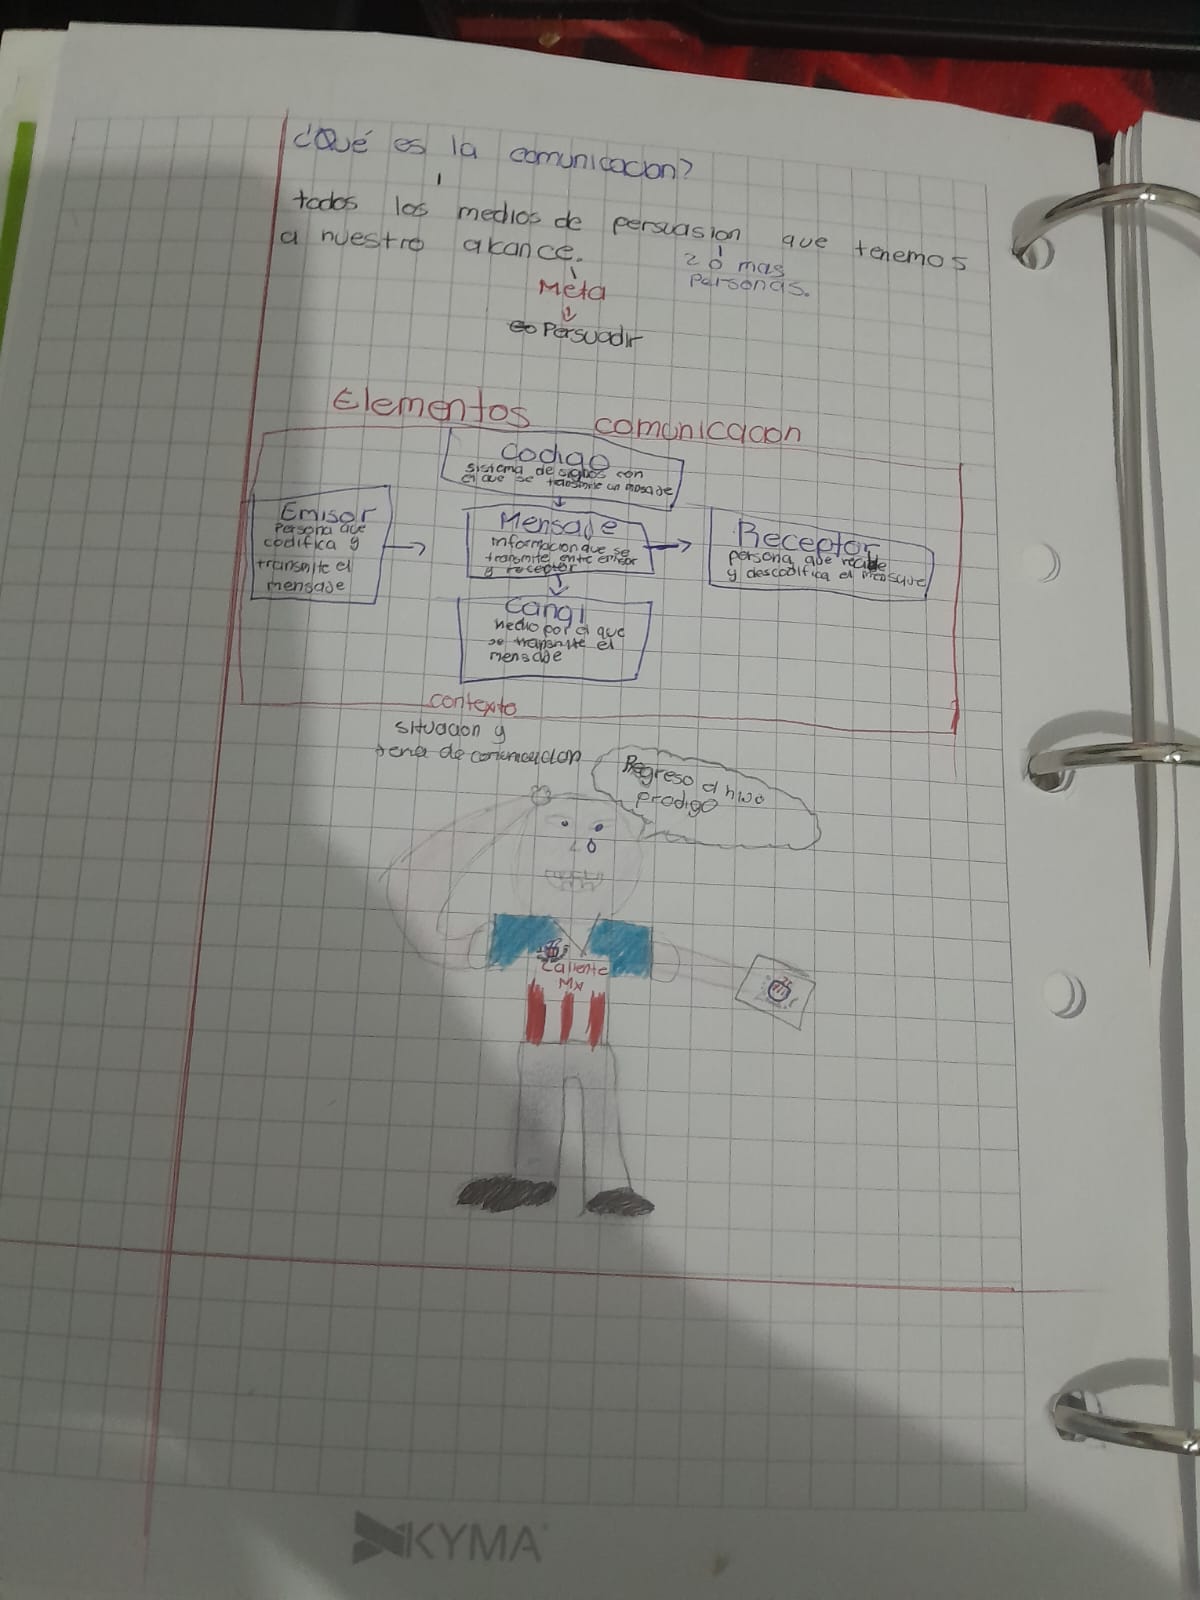 ¿Qué es la comunicacion?
todos los medios de persuasion que tenemos
a nuestro alcance.
2 ó mas
personas.
Meta
Persuadir
Elementos comunicacion
Codigo
sistema de signos con
el que se transmite un mensaje
Emisor
Persona que
codifica y
transmite el
mensaje
Mensaje
informacion que se
transmite entre emisor
y receptor
Receptor
persona que recibe
y descodifica el mensaje
Canal
medio por el que
se transmite el
mensaje
contexto
situacion y
tema de comunicacion
Regreso el hijo
prodigo
Caliente
Mx
KYMA